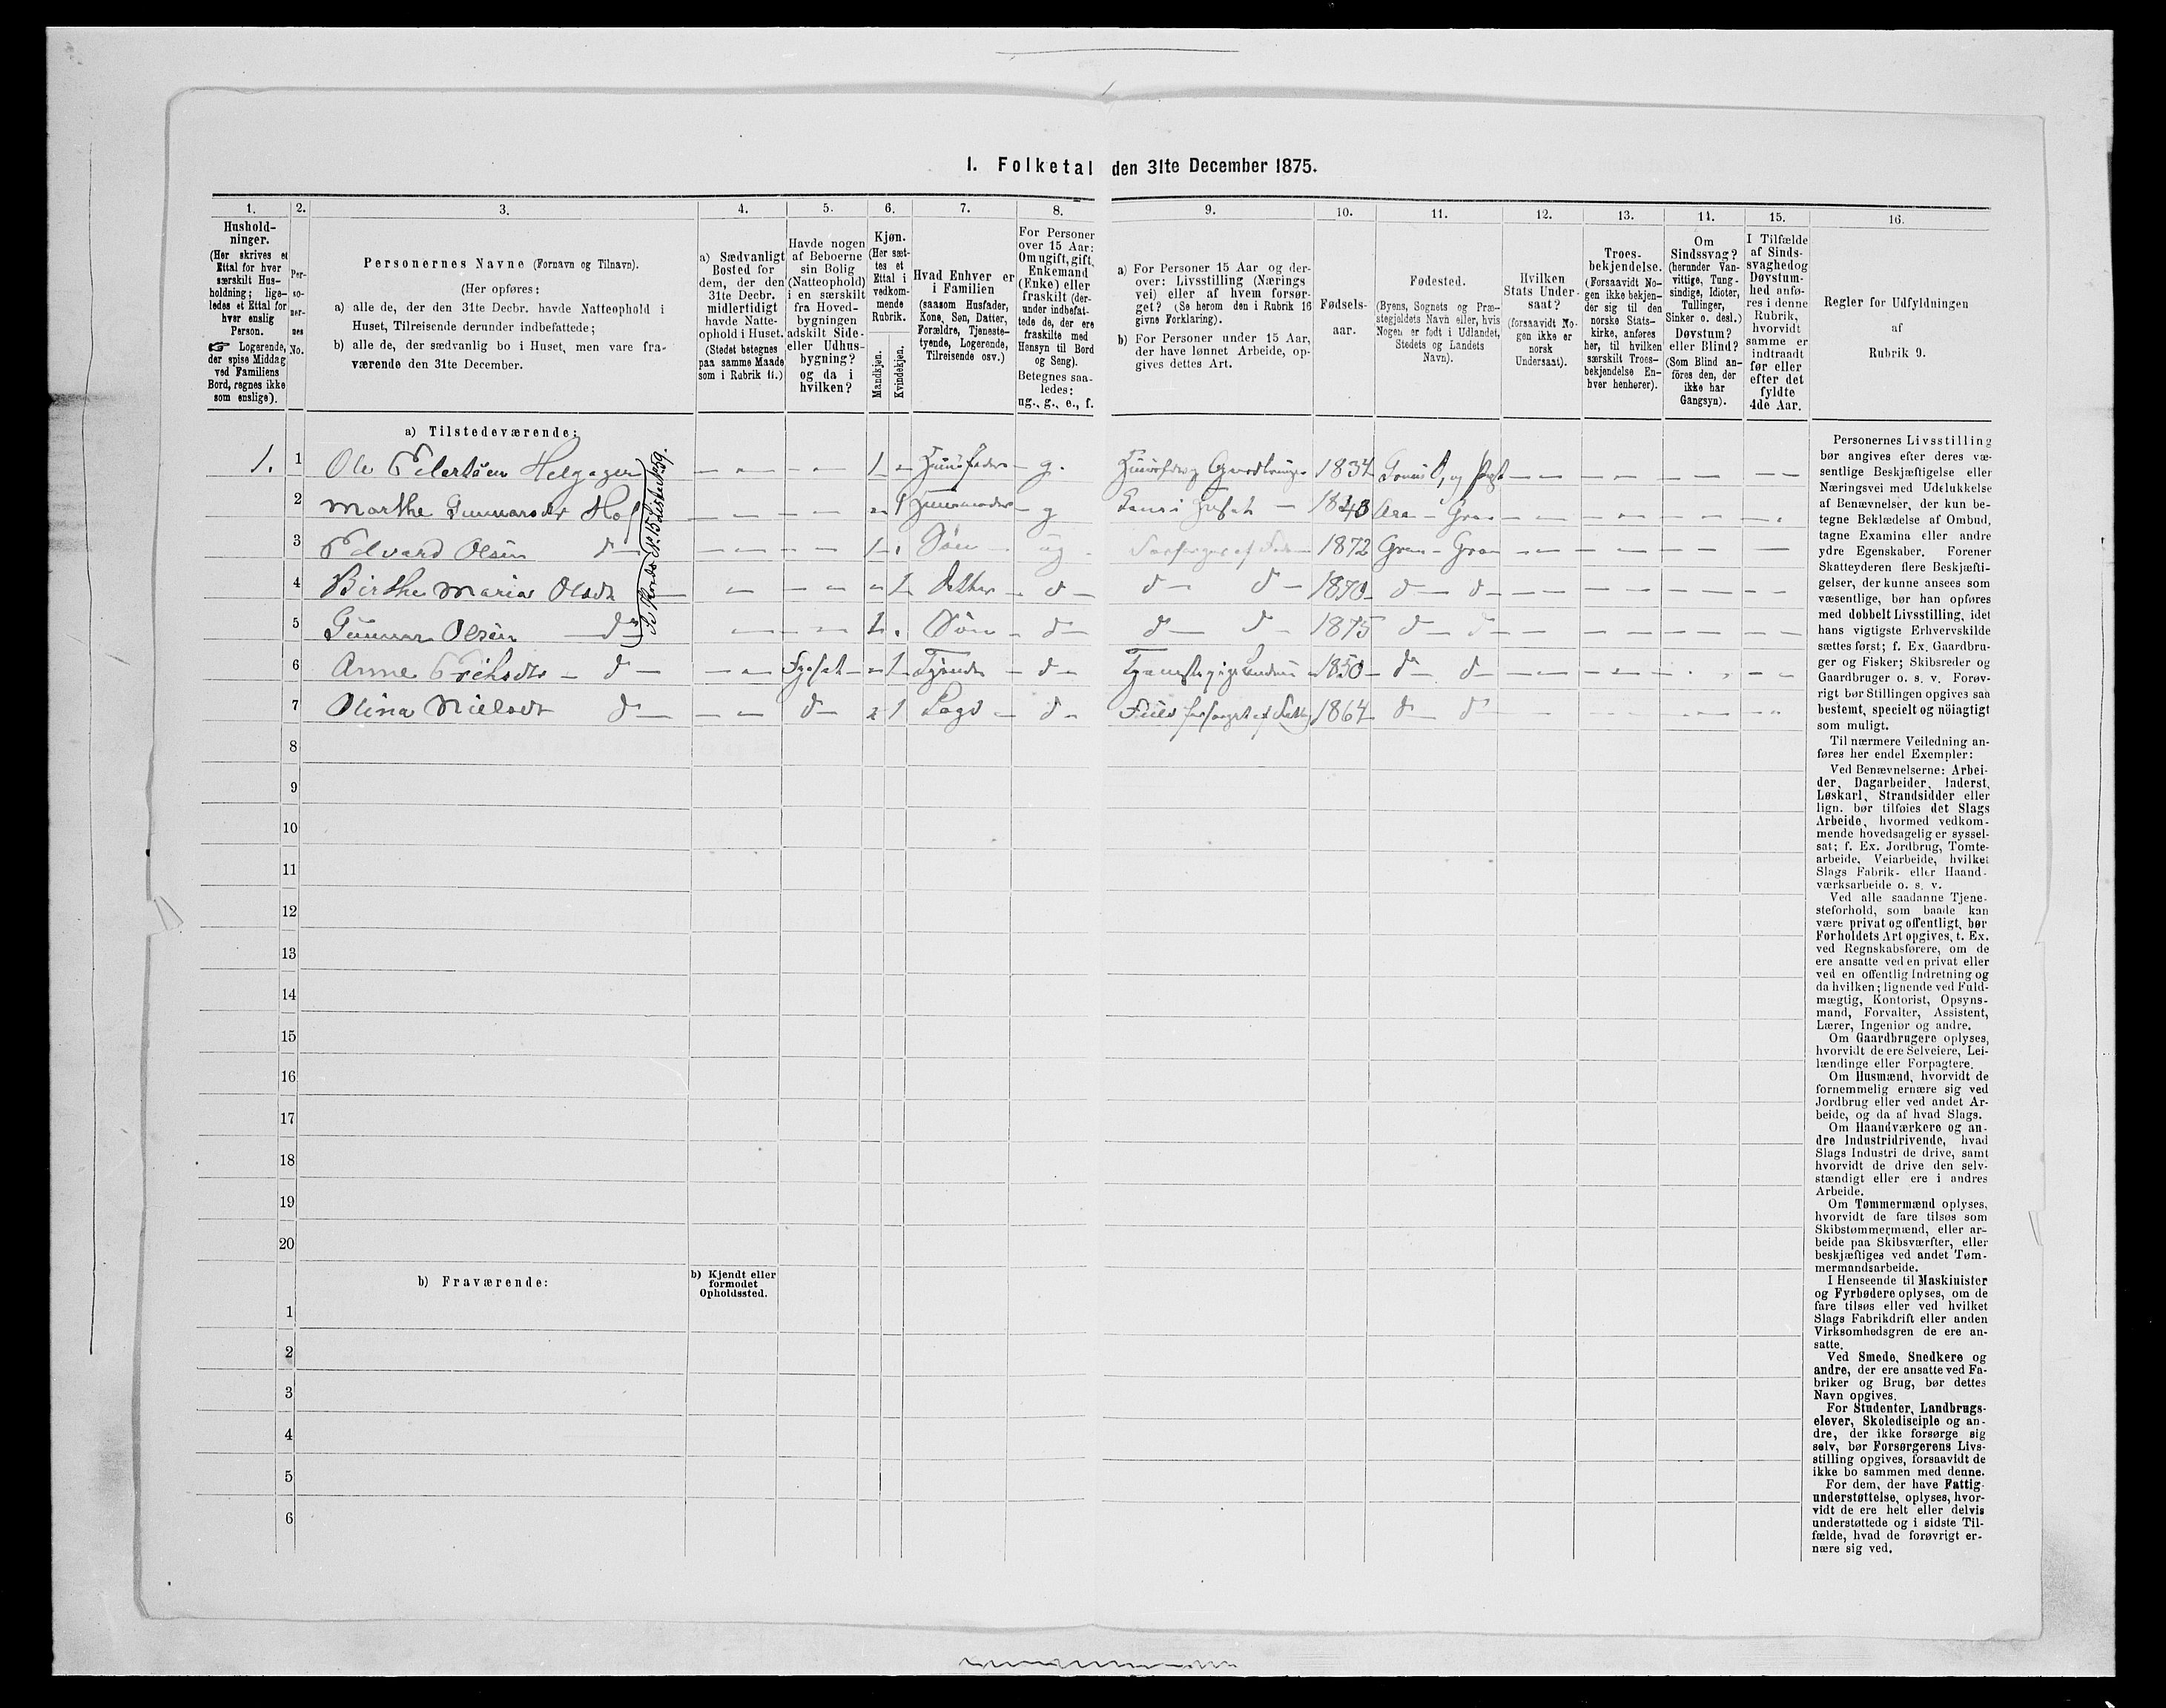 I. Folketal den 31te December 1875.
1. 2. 3. 4. 5. 6. 7. 8. 9. 10. 11. 12. 13. 14. 15. 16.
Hushold-
ninger.
(Her skrives et
Ettal for hver
særskilt Hus-
holdning; lige-
ledes et Ettal for
hver enslig
Person.
☞ Logerende,
der spise Middag
ved Familiens
Bord, regnes ikke
som enslige).
Per-
so-
ner-
nes
No.
Personernes Navne (Fornavn og Tilnavn).
(Her opføres:
a) alle de, der den 31te Decbr. havde Natteophold i
Huset, Tilreisende derunder indbefattede;
b) alle de, der sædvanlig bo i Huset, men vare fra-
værende den 31te December.
a) Sædvanligt
Bosted for
dem, der den
31te Decbr.
midlertidigt
havde Natte-
ophold i Huset.
(Stedet betegnes
paa samme Maade
som i Rubrik 11.)
Havde nogen
af Beboerne
sin Bolig
(Natteophold)
i en særskilt
fra Hoved-
bygningen
adskilt Side-
eller Udhus-
bygning?
og da i
hvilken?
Kjøn.
(Her sæt-
tes et
Ettal i
vedkom-
mende
Rubrik.
Mandkjøn.
Kvindekjøn.
Hvad Enhver er
i Familien
(saasom Husfader,
Kone, Søn, Datter,
Forældre, Tjeneste-
tyende, Logerende,
Tilreisende osv.)
For Personer
over 15 Aar:
Om ugift, gift,
Enkemand
(Enke) eller
fraskilt (der-
under indbefat-
tede de, der ere
fraskilte med
Hensyn til Bord
og Seng).
Betegnes saa-
ledes:
ug., g., e., f.
a) For Personer 15 Aar og der-
over: Livsstilling (Nærings
vei) eller af hvem forsør-
get? (Se herom den i Rubrik 16
givne Forklaring).
b) For Personer under 15 Aar,
der have lønnet Arbeide, op-
gives dettes Art.
Fødsels-
aar.
Fødested.
(Byens, Sognets og Præ-
stegjeldets Navn eller, hvis
Nogen er født i Udlandet,
Stedets og Landets
Navn).
Hvilken
Stats Under-
saat?
(forsaavidt No-
gen ikke er
norsk
Undersaat).
Troes-
bekjendelse.
(Forsaavidt No-
gen ikke bekjen-
der sig til den
norske Stats-
kirke, anføres
her, til hvilken
særskilt Troes-
bekjendelse En-
hver henhører).
Om
Sindssvag?
(herunder Van-
vittige, Tung-
sindige, Idioter,
Tullinger,
Sinker o. desl.)
Døvstum?
eller Blind?
(Som Blind an-
föres den, der
ikke har
Gangsyn).
I Tilfælde
af Sinds-
svaghed og
Døvstum-
hed anfø-
res i denne
Rubrik,
hvorvidt
samme er
indtraadt
før eller
efter det
fyldte
4de Aar.
Regler for Udfyldningen
af
Rubrik 9.
a) Tilstedeværende:
1. 1 Ole Helgager — 1 — Huusfader g. 1834
2 Marthe Gunnarsdtr Hof — 1 Huusmoder g 1843 Gran
3 Edvard Olsen d — 1 Søn ug 1872 Gran - Gran
4 Birthe Maria Olsdt — 1 d d d 1870 d d
5 Gunnar Olsen d — 1 Søn d d d 1875 d d
6 Anne d — 1 d 1850 d d
7 Olina Nielsdt d — d 1 Logd d 1864 d d
8
9
10
11
12
13
14
15
16
17
18
19
20
b) Fraværende:
b) Kjendt eller
formodet
Opholdssted.
1
2
3
4
5
6
Personernes Livsstilling
bør angives efter deres væ-
sentlige Beskjæftigelse eller
Næringsvei med Udelukkelse
af Benævnelser, der kun be-
tegne Beklædelse af Ombud,
tagne Examina eller andre
ydre Egenskaber. Forener
Skatteyderen flere Beskjæfti-
gelser, der kunne ansees som
væsentlige, bør han opføres
med dobbelt Livsstilling, idet
hans vigtigste Erhvervskilde
sættes først; f. Ex. Gaardbru-
ger og Fisker; Skibsreder og
Gaardbruger o. s. v. Forøv-
rigt bør Stillingen opgives saa
bestemt, specielt og nöiagtigt
som muligt.
Til nærmere Veiledning an-
føres her endel Exempler:
Ved Benævnelserne: Arbei-
der, Dagarbeider, Inderst,
Løskarl, Strandsidder eller
lign. bør tilføies det Slags
Arbeide, hvormed vedkom-
mende hovedsagelig er syssel-
sat; f. Ex. Jordbrug, Tomte-
arbeide, Veiarbeide, hvilket
Slags Fabrik- eller Haand-
værksarbeide o. s. v.
Ved alle saadanne Tjene-
steforhold, som baade kan
være privat og offentligt, bør
Forholdets Art opgives, t. Ex.
ved Regnskabsførere, om de
ere ansatte ved en privat eller
ved en offentlig Indretning og
da hvilken; lignende ved Fuld-
mægtig, Kontorist, Opsyns-
mand, Forvalter, Assistent,
Lærer, Ingeniør og andre.
Om Gaardbrugere oplyses,
hvorvidt de ere Selveiere, Lei-
lændinge eller Forpagtere.
Om Husmænd, hvorvidt de
fornemmelig ernære sig ved
Jordbrug eller ved andet Ar-
beide, og da af hvad Slags.
Om Haandværkere og an-
dre Industridrivende, hvad
Slags Industri de drive, samt
hvorvidt de drive den selv-
stændigt eller ere i andres
Arbeide.
Om Tømmermænd oplyses,
hvorvidt de fare tilsøs som
Skibstømmermænd, eller ar-
beide paa Skibsværfter, eller
beskjæftiges ved andet Tøm-
mermandsarbeide.
I Henseende til Maskinister
og Fyrbødere oplyses, om de
fare tilsøs eller ved hvilket
Slags Fabrikdrift eller anden
Virksomhedsgren de ere an-
satte.
Ved Smede, Snedkere og
andre, der ere ansatte ved Fa-
briker og Brug, bør dettes
Navn opgives.
For Studenter, Landbrugs-
elever, Skoledisciple og an-
dre, der ikke forsørge sig
selv, bør Forsørgerens Livs-
stilling opgives, forsaavidt de
ikke bo sammen med denne.
For dem, der have Fattig-
understøttelse, oplyses, hvor-
vidt de ere helt eller delvis
understøttede og i sidste Til-
fælde, hvad de forøvrigt er-
nære sig ved.